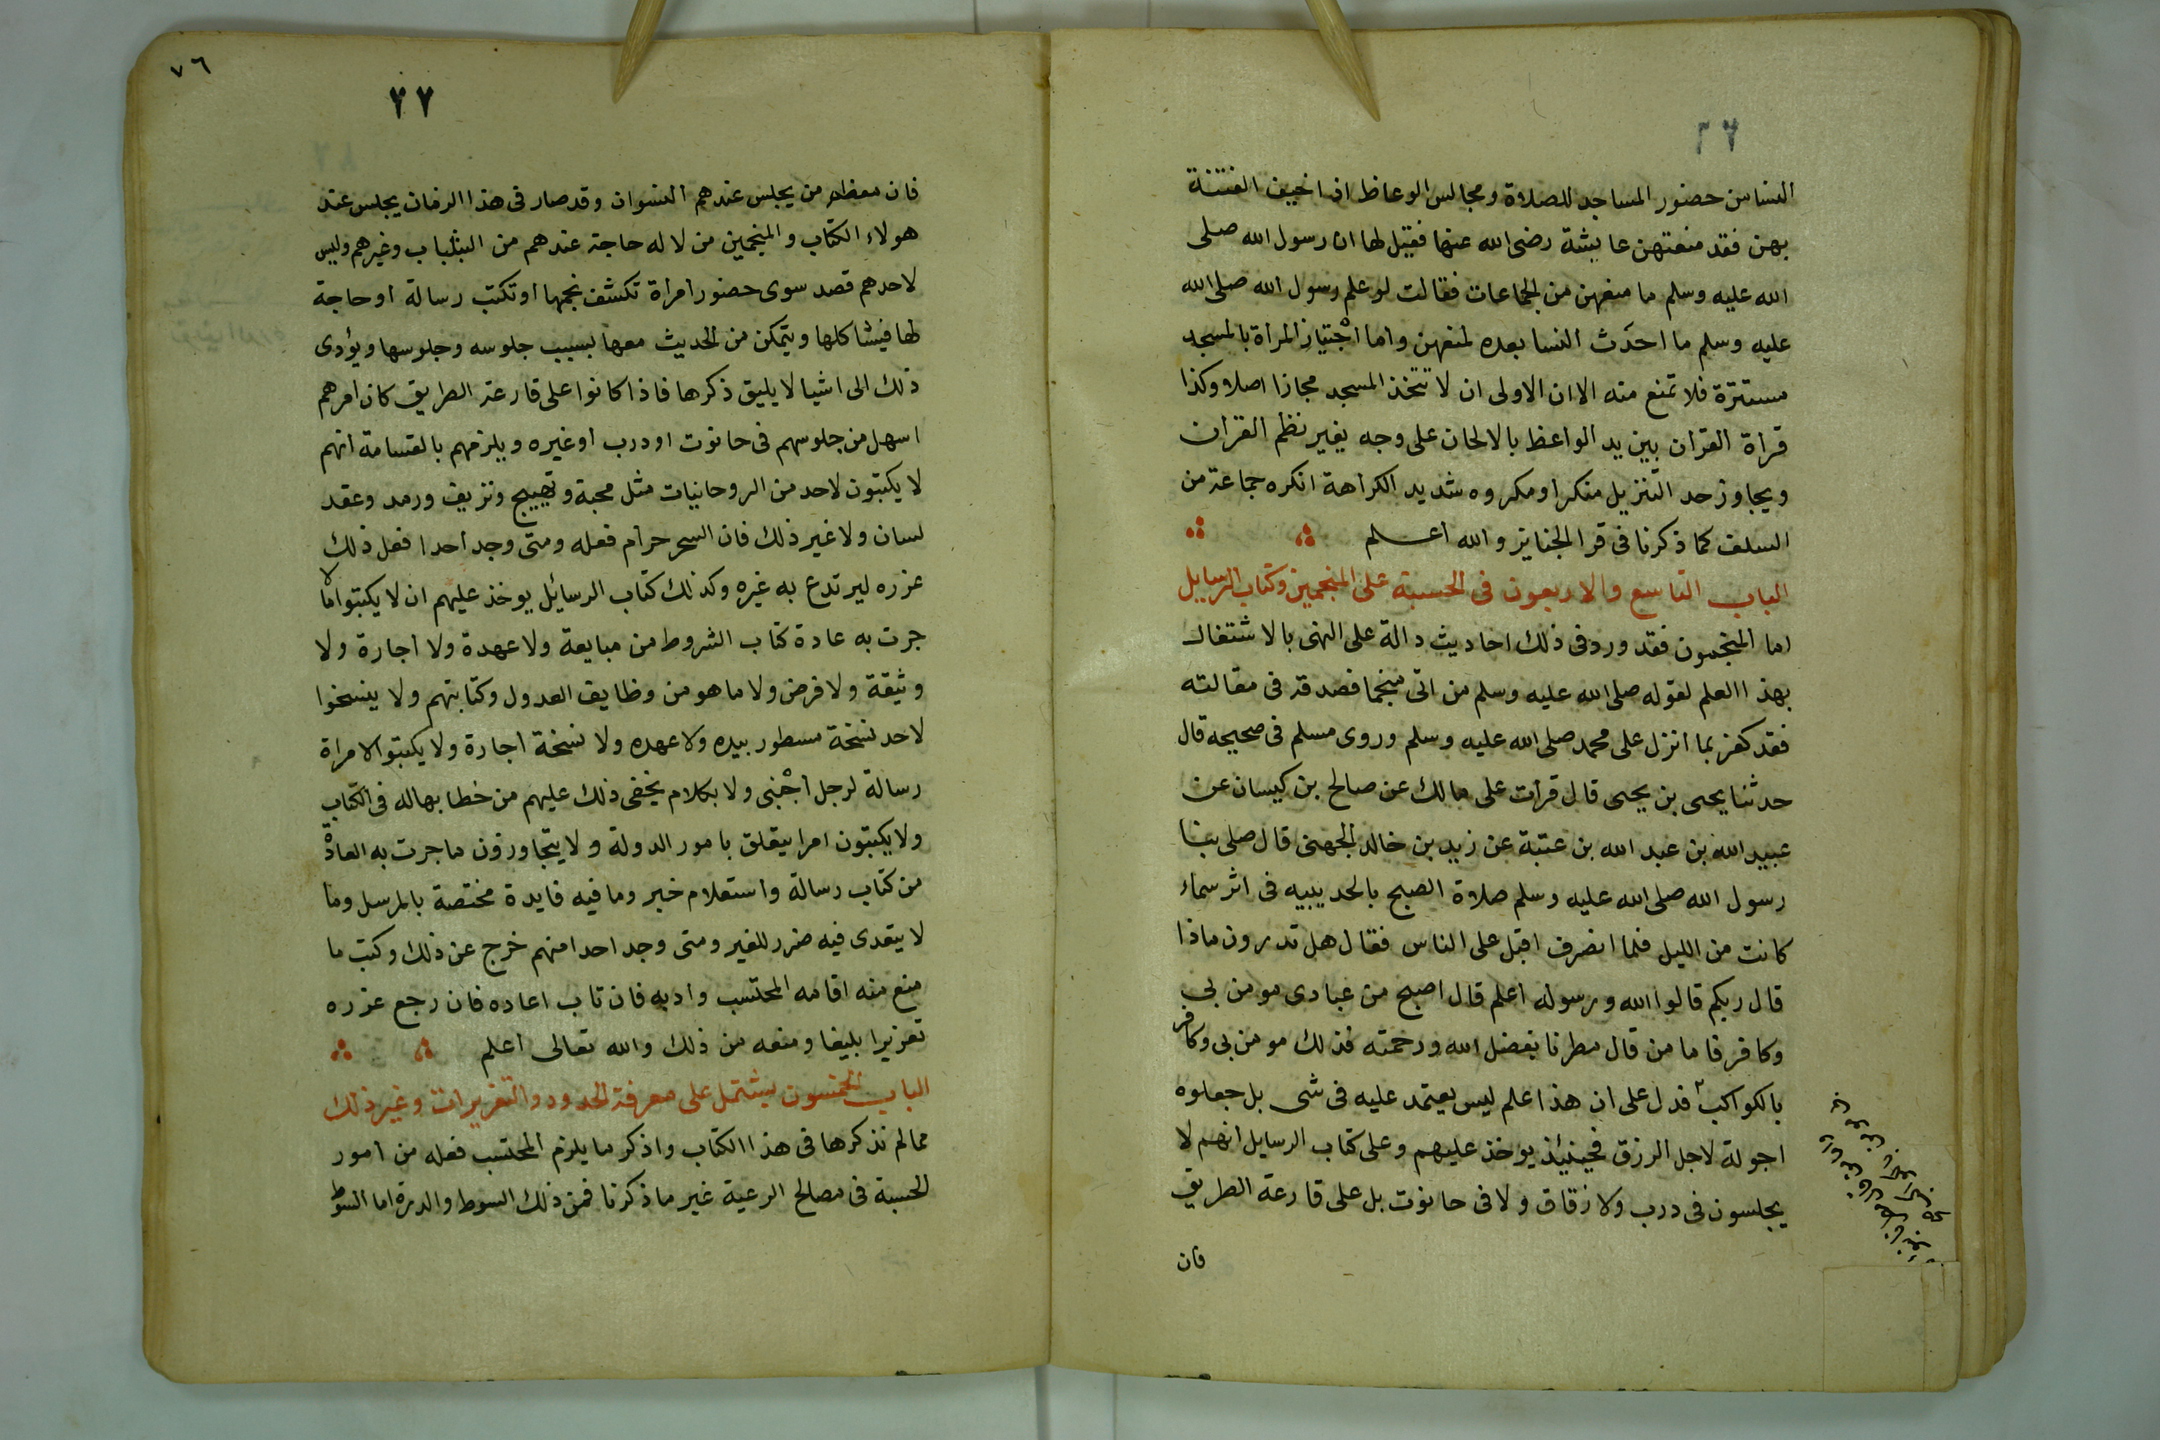 النسا من حضور المساجد للصلاة ومجالس الوعاظ اذا خيف الفتنة
بهن فقد منعتهن عايشة رضى الله عنها فقيل لها ان رسول الله صلى
الله عليه وسلم ما منعهن من الجماعات فقالت لو علم رسول الله صلى الله
عليه وسلم ما احدَث النسا بعده لمنعهن واما اجْتيازِ المراة بالمسجد
مستترة فلا تمنع منه الا ان الاولى ان لا تتخذ المسجد مجازا اصلا وكذا
قراة القرآن بين يد الواعظ بالالحان على وجه يغير نظم القران
ويجاوز حد التنزيل منكرا ومكروه شديد الكراهة انكره جماعة من
السلف كما ذكرنا فى قرا الجنايز والله اعلم
الباب التاسع والاربعون فى الحسبة على المنجمين وكتاب الرسايل
اما المنجمون فقد ورد فى ذلك احاديث دالة على النهى بالاشتغال
بهذا العلم لقوله صلى الله عليه وسلم من اتى منجما فصدقه فى مقالته
فقد كفر بما انزل على محمد صلى الله عليه وسلم وروى مسلم فى صحيحه قال
حدثنا يحيى بن يحيى قال قرأت على مالك عن صالح بن كيسان عن
عبيد الله بن عبد الله بن عتبة عن زيد بن خالد الجهنى قال صلى بنا
رسول الله صلى الله عليه وسلم صلاة الصبح بالحديبيه فى اثر سماء
كانت من الليل فلما انصرف اقبل على الناس فقال هل تدرون ماذا
قال ربكم قالوا الله ورسوله اعلم قال اصبح من عبادى مومن بى
وكافر فاما من قال مطرنا بفضل الله ورحمته فذلك مومن بى وكافر
بالكواكب فدل على ان هذا علم ليس يعتمد عليه فى شى بل جعلوه
اجولة لاجل الرزق فحينئذ يوخذ عليهم وعلى كتاب الرسايل انهم لا
يجلسون فى درب ولا زقاق ولا فى حانوت بل على قارعة الطريق
فان
٧٦
٧٧
فان معظم من يجلس عندهم النسوان وقد صار فى هذا الزمان يجلس عند
هولاء الكتاب والمنجمين من لا له حاجة عندهم من الشباب وغيرهم وليس
لاحدهم قصد سوى حضور امراة تكشف نجمها او تكتب رسالة او حاجة
لها فيشاكلها ويتمكن من الحديث معها بسبب جلوسه وجلوسها ويؤدى
ذلك الى اشيا لا يليق ذكرها فاذا كانوا على قارعة الطريق كان امرهم
اسهل من جلوسهم فى حانوت او درب او غيره ويلزمهم بالقسامة انهم
لا يكتبون لاحد من الروحانيات مثل محبة وتهييج ونزيف ورمد وعقد
لسان ولا غير ذلك فان السحر حرام فعله ومتى وجد احدا فعل ذلك
عزره ليرتدع به غيره وكذلك كتاب الرسائل يوخذ عليهم ان لا يكتبوا ما
جرت به عادة كتاب الشروط من مبايعة ولا عهدة ولا اجارة ولا
وثيقة ولا فرض ولا ما هو من وظايف العدول وكتابتهم ولا ينسخوا
لاحد نسخة مسطور بيده ولا عهده ولا نسخة اجارة ولا يكتبوا لامراة
رسالة لرجل اجْنبى ولا بكلام يخفى ذلك عليهم من خطابها له فى الكتاب
ولا يكتبون امرا يتعلق بامور الدولة ولا يتجاوزون ما جرت به العادة
من كتاب رسالة واستعلام خبر وما فيه فايدة مختصة بالمرسل وما
لا يتعدى فيه ضرر للغير ومتى وجد احدا منهم خرج عن ذلك وكتب ما
منع منه اقامه المحتسب وادبه فان تاب اعاده فان رجع عزره
تعزيرا بليغا ومنعه من ذلك والله تعالى اعلم
الباب الخمسون يشتمل على معرفة الحدود والتعزيرات وغير ذلك
مما لم نذكرها فى هذا الكتاب واذكر ما يلزم المحتسب فعله من امور
الحسبة فى مصالح الرعية غير ما ذكرنا فمن ذلك السوط والدرة اما السوط